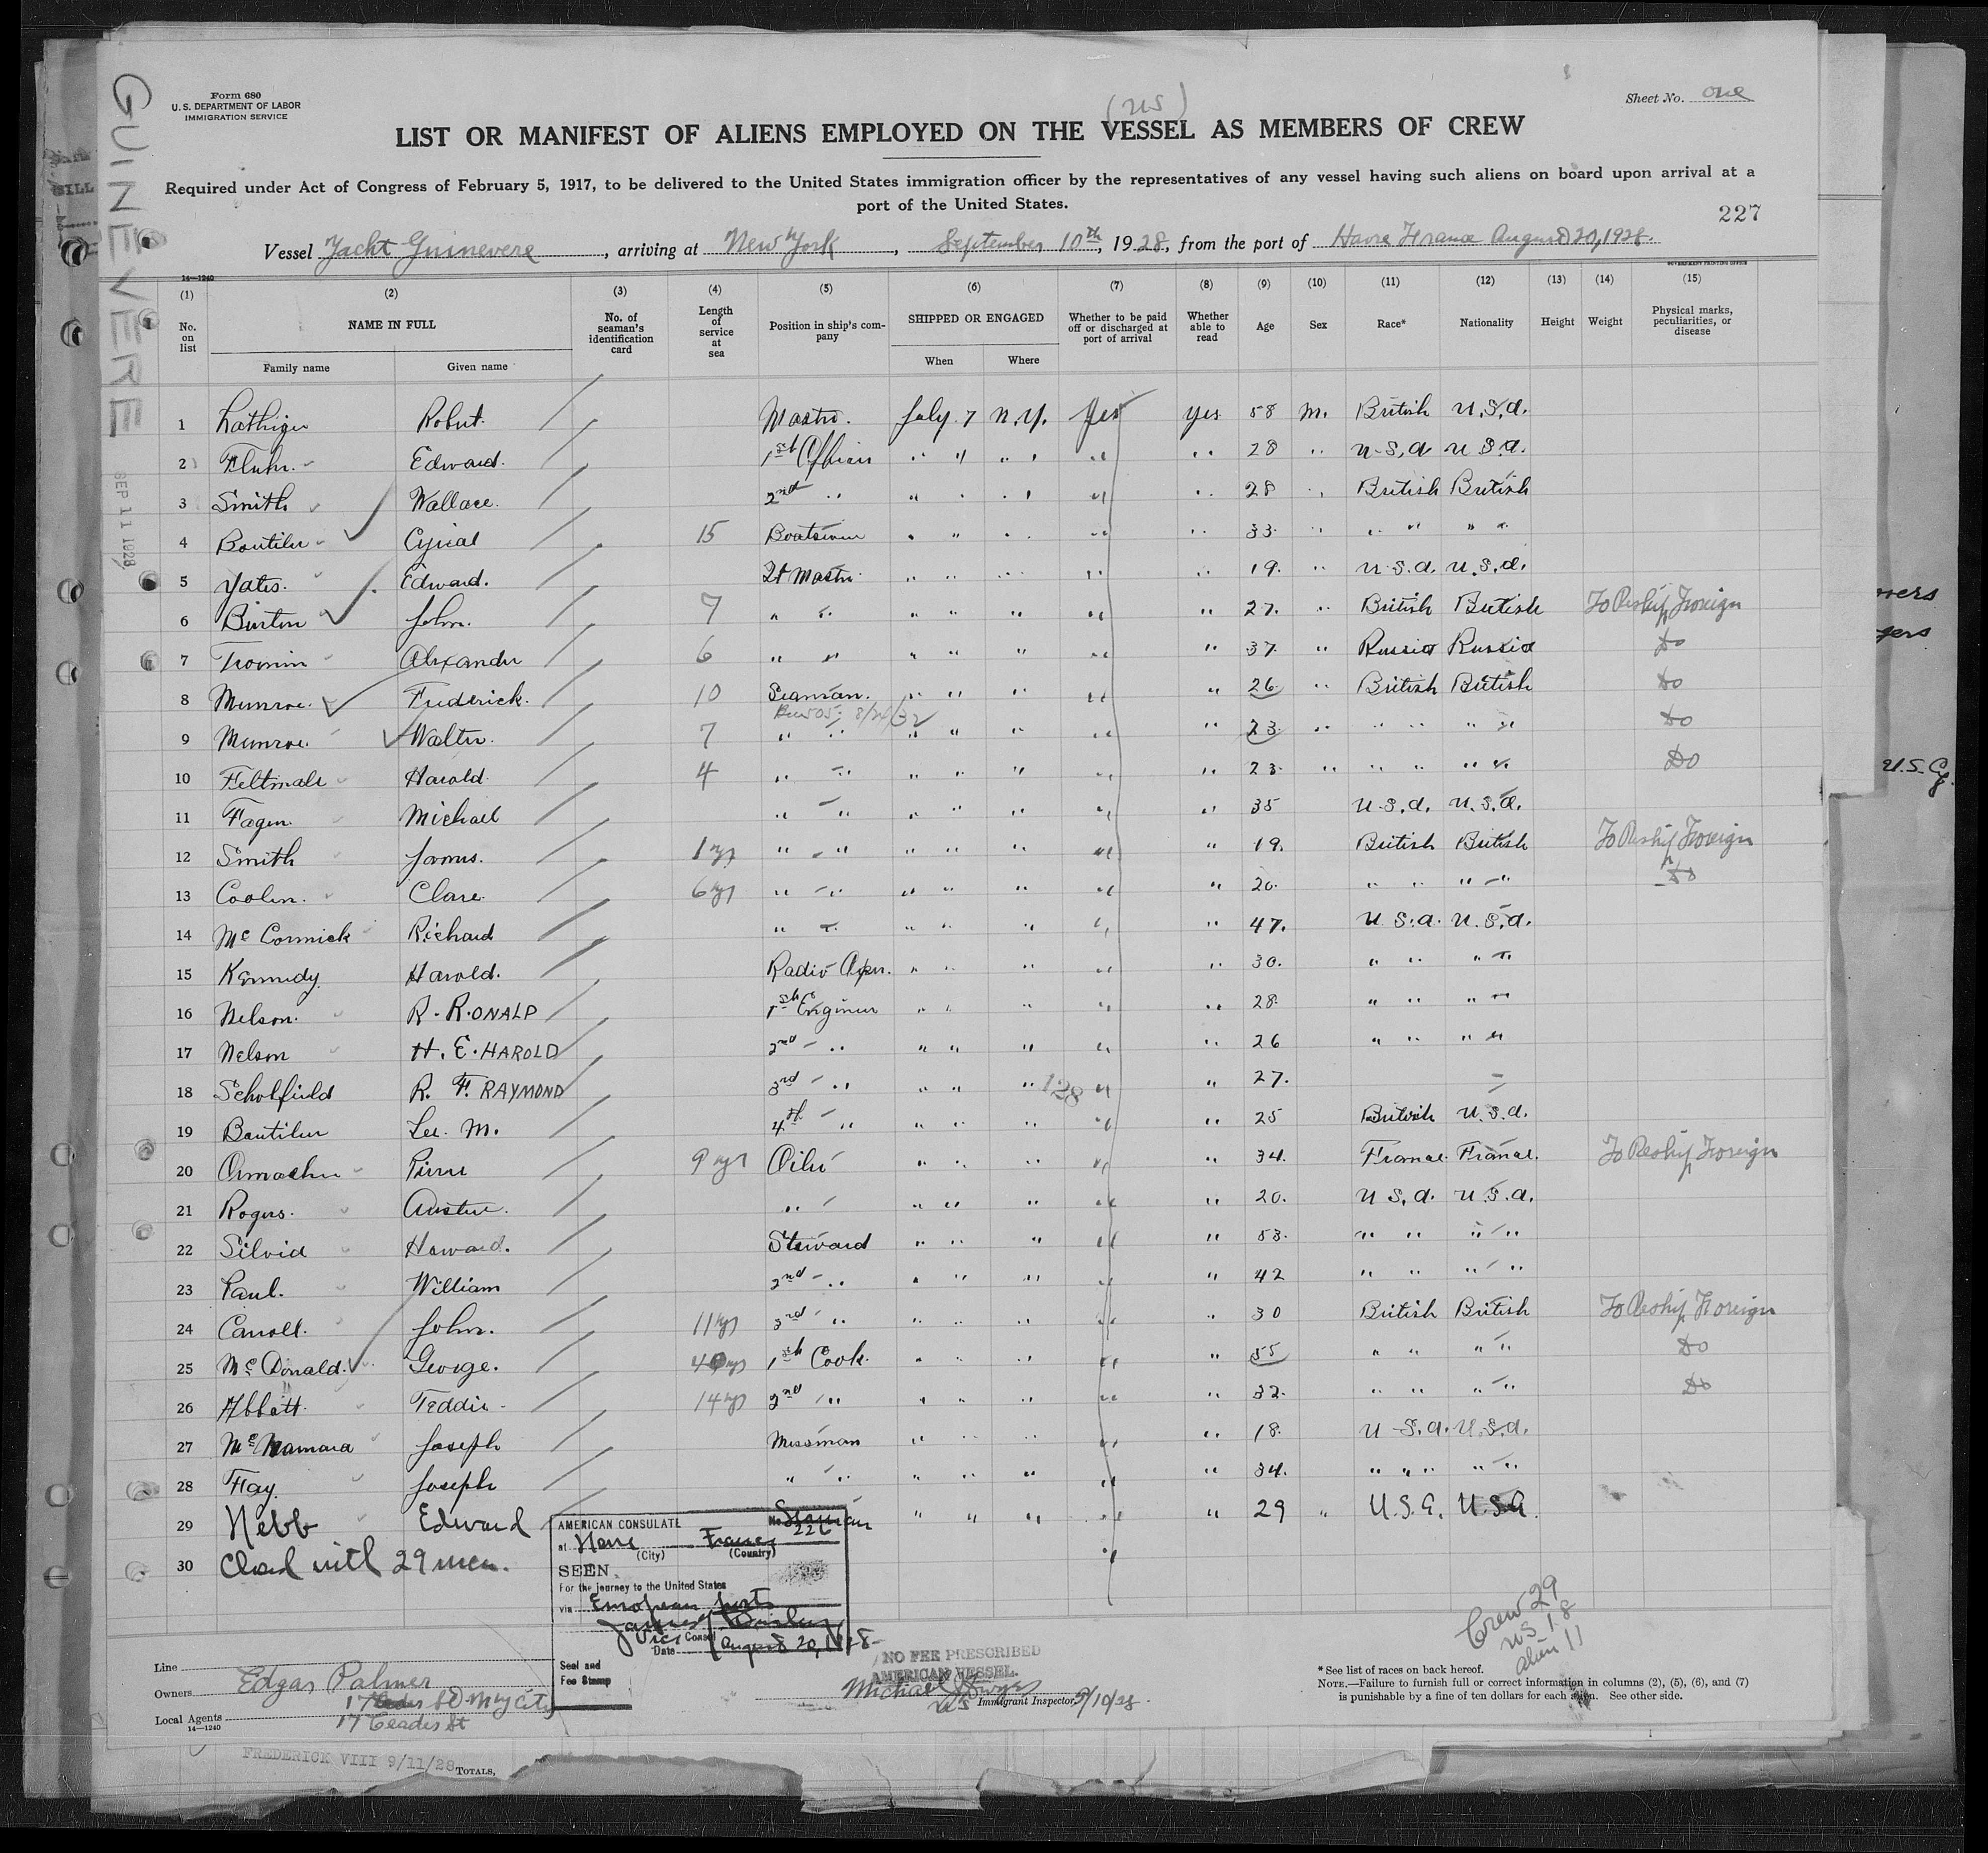 GUINEVERE
SEP 11 1928
Form 680
U. S. DEPARTMENT OF LABOR
IMMIGRATION SERVICE
Sheet No. One
(US)
LIST OR MANIFEST OF ALIENS EMPLOYED ON THE VESSEL AS MEMBERS OF CREW
Required under Act of Congress of February 5, 1917, to be delivered to the United States immigration officer by the representatives of any vessel having such aliens on board upon arrival at a
port of the United States.
227
Vessel Yacht Guinevere, arriving at New York, September 10th, 1928, from the port of Havre France August 20, 1928.
14—1240 GOVERNMENT PRINTING OFFICE
(1) (2) (3) (4) (5) (6) (7) (8) (9) (10) (11) (12) (13) (14) (15)
No. on list NAME IN FULL Family name Given name No. of seaman's identification card Length of service at sea Position in ship's company SHIPPED OR ENGAGED When Where Whether to be paid off or discharged at port of arrival Whether able to read Age Sex Race* Nationality Height Weight Physical marks, peculiarities, or disease
1 Robert. Master. July 7 N.Y. Yes yes 58 M. British U.S.A.
2 Fluhr. Edward. 1st Officer " " " " " " 28 " U.S.A. U.S.A.
3 Smith Wallace. 2nd " " " " " " " 28 " British British
4 Boutilier Cyrial 15 Boatswain " " " " " " 33 " " " " "
5 Yates. Edward. Qt Master " " " " " " 19. " U.S.A. U.S.A.
6 Burton John. 7 " " " " " " " 27. " British British To Reship Foreign
7 Alexander 6 " " " " " " " 37. " Russia Russia Do
8 Munroe. Frederick. 10 Seaman. " " " " " 26. " British British Do
9 Munroe. Walter. 7 " " " " " " " 23. " " " " " Do
10 Feltmate Harold 4 " " " " " " " 23. " " " " " Do
11 Fagen. Michael " " " " " " " 35 U.S.A. U.S.A.
12 Smith James. 1 yr " " " " " " " 19. British British To Reship Foreign
13 Coolen. Clare. 6 yr " " " " " " " 20. " " " " Do
14 McCormick Richard " " " " " " " 47. U.S.A. U.S.A.
15 Kennedy Harold. Radio Oper. " " " " " 30. " " " "
16 Nelson. R. RONALD 1st Engineer " " " " " 28. " " " "
17 Nelson H. E. HAROLD 2nd " " " " " " " 26 " " " "
18 Scholfield R. F. RAYMOND 3rd " " " " " " 27. "
19 Boutilier Lee. M. 4th " " " " " " 25 British U.S.A.
20 Pierre 9 yr Oiler " " " " " 34. France. France. To Reship Foreign
21 Rogers. Austin. " " " " " " 20. U.S.A. U.S.A.
22 Silvia Howard. Steward " " " " " 53. " " " "
23 Paul. William 2nd " " " " " " 42 " " " "
24 Carroll. John. 11 yr 3rd " " " " " " 30 British British To Reship Foreign
25 McDonald. George. 40 yr 1st Cook. " " " " " 55 " " " " Do
26 Abbott. Teddie. 14 yr 2nd " " " " " " 32. " " " " Do
27 McNamara Joseph Messman " " " " " 18. U.S.A. U.S.A.
28 Joseph " " " " " " " 34. " " " "
29 Edward Seaman " " " " " 29 " U.S.A. U.S.A.
30 Closed with 29 men.
AMERICAN CONSULATE No. 226
at Havre France
(City) (Country)
SEEN
For the journey to the United States
via European ports
Vice Consul
Date August 20, 1928
Seal and
Fee Stamp
NO FEE PRESCRIBED
AMERICAN VESSEL.
Crew 29
US 18
alien 11
Line
Owners Edgar Palmer
17 Cedar St N.Y. City
Local Agents 17 Cedar St
14—1240
Michael
US Immigrant Inspector. 9/10/28.
* See list of races on back hereof.
NOTE.—Failure to furnish full or correct information in columns (2), (5), (6), and (7)
is punishable by a fine of ten dollars for each alien. See other side.
FREDERICK VIII 9/11/28 TOTALS,
U.S. Cg.